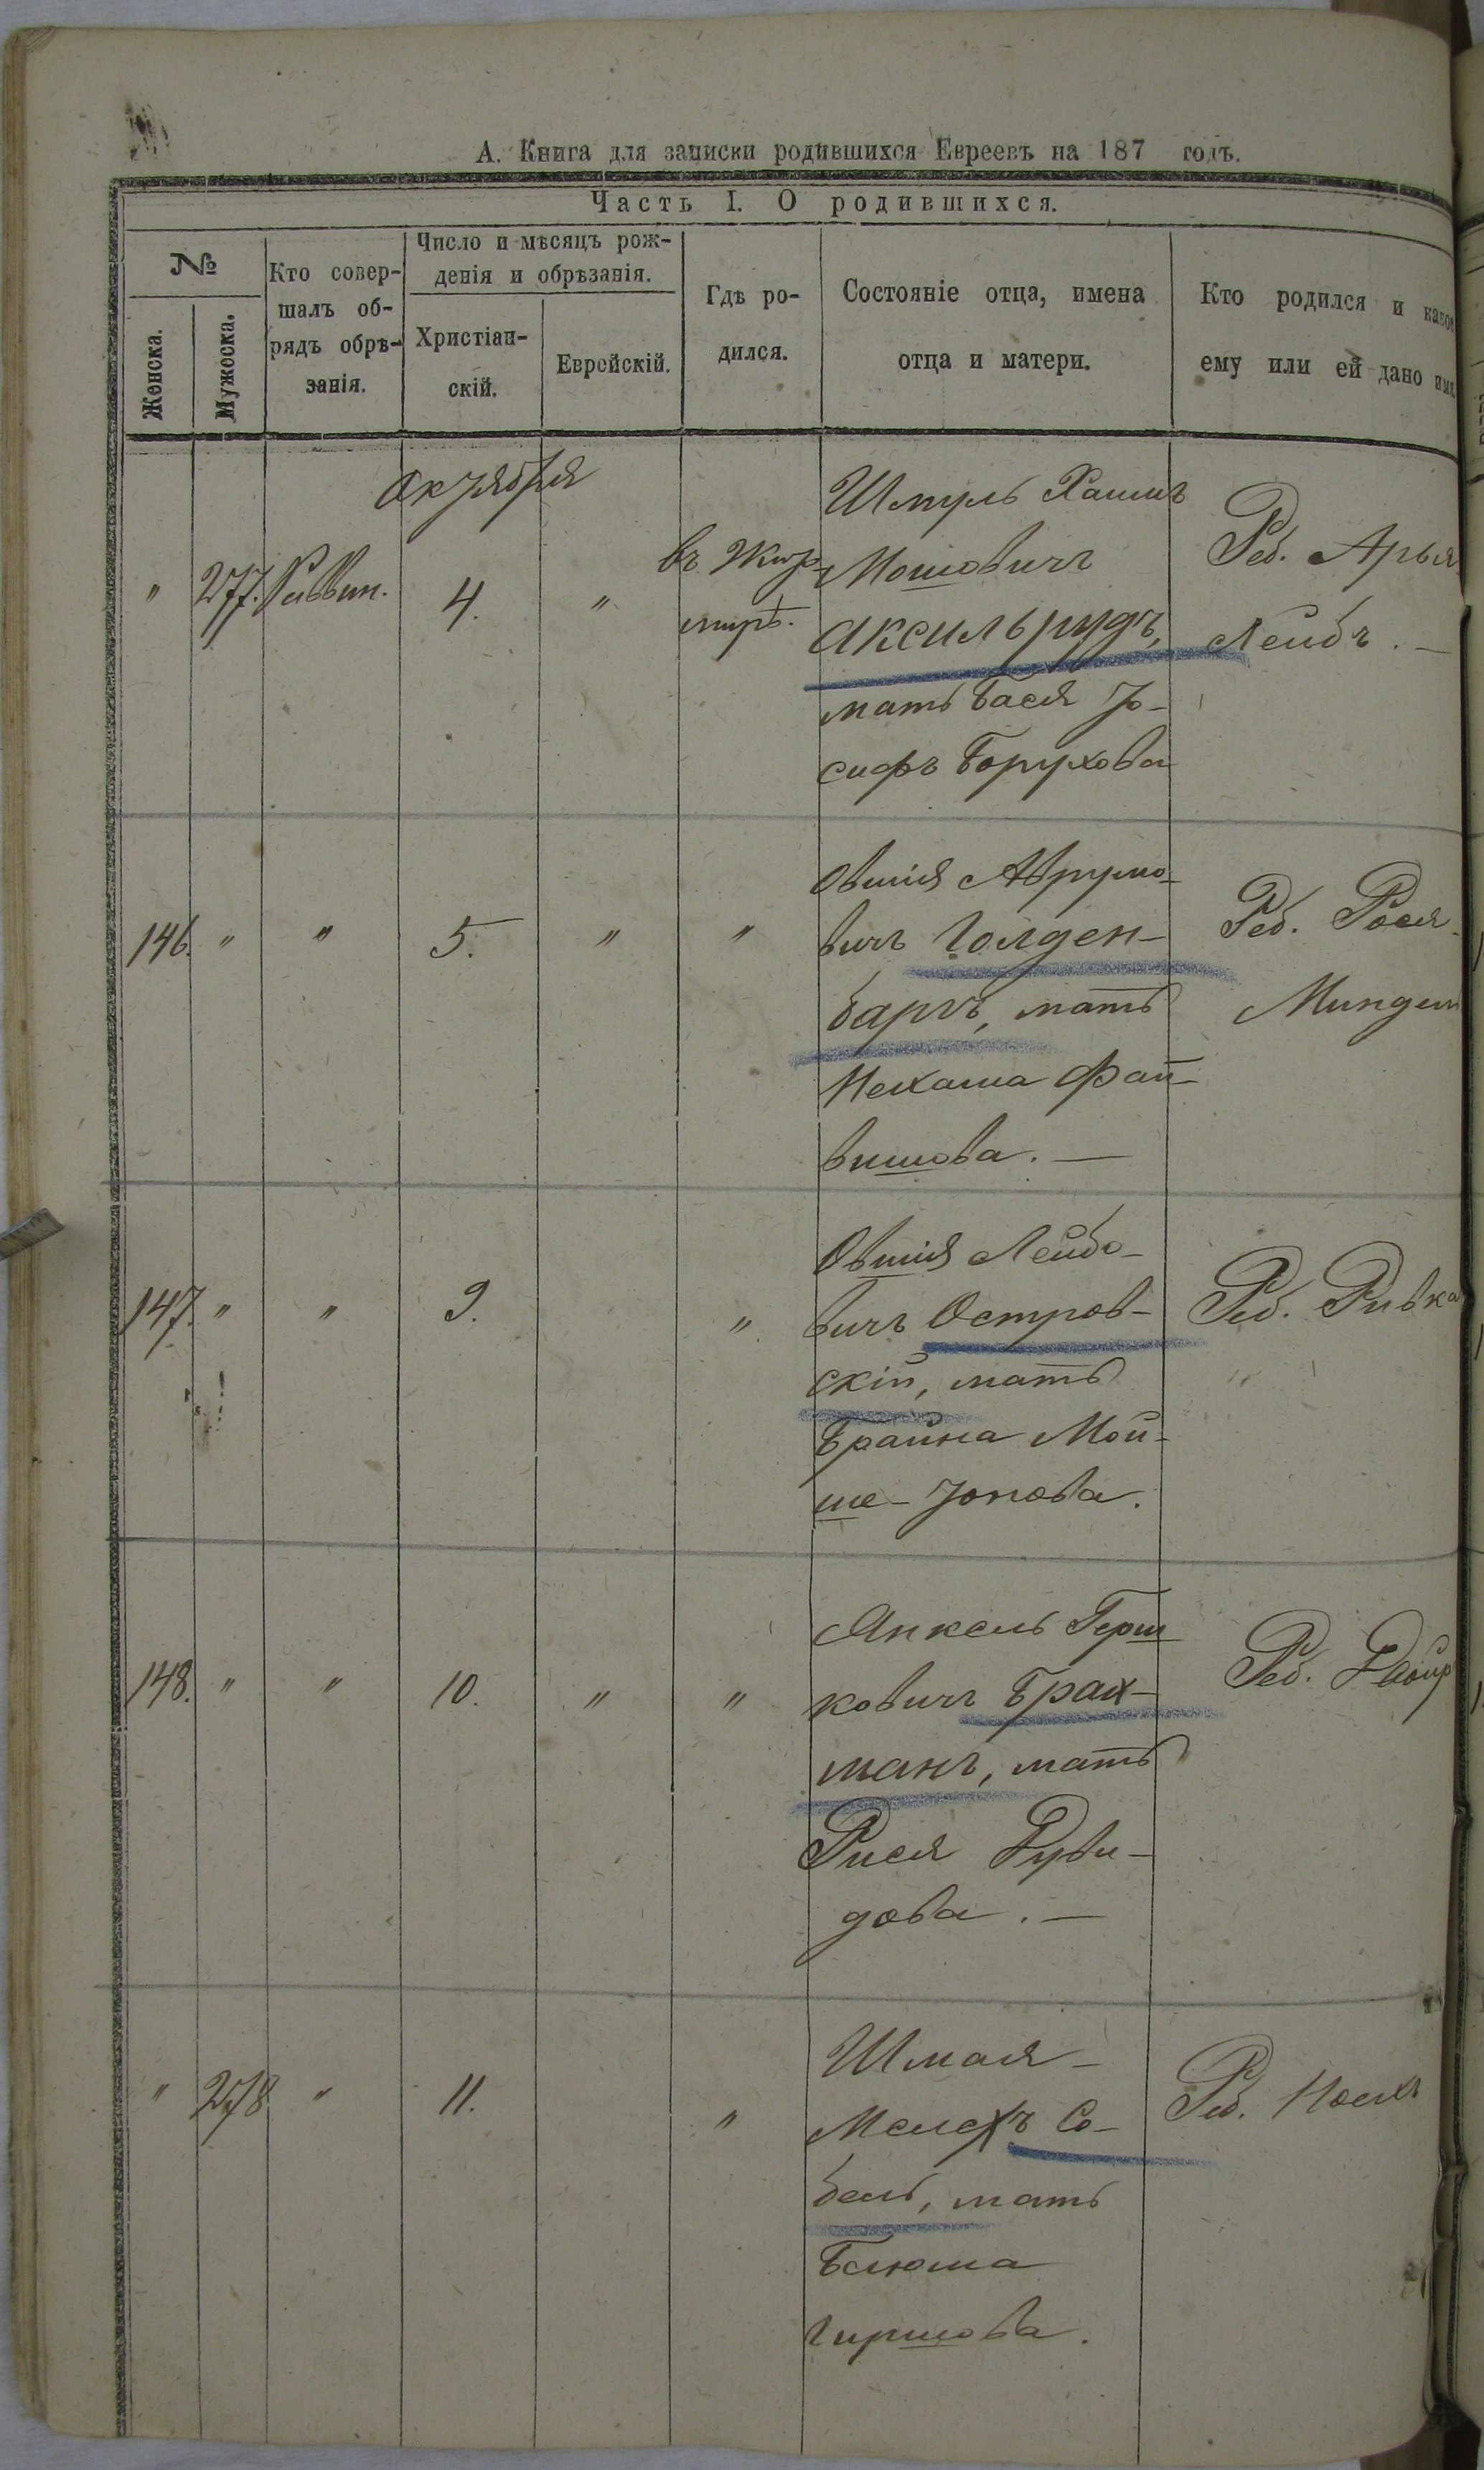 А. Книга для записки родившихся Евреевъ на 187 годъ.
Часть I. О родившихся.
№
Женска.
Мужеска.
Кто совер-
шалъ об-
рядъ обрѣ-
занія.
Число и мѣсяцъ рож-
денія и обрѣзанія.
Христіан-
скій.
Еврейскій.
Гдѣ ро-
дился.
Состояніе отца, имена
отца и матери.
Кто родился и какое
ему или ей дано имя.
Октября
" 277. Раввин. 4. "
въ Жит-
мирѣ.
Шмуль Хаимъ
Мошовичъ
Аксильрудъ,
мать Бася Іо-
сифъ Борухова
Реб. Арья
Лейбъ. —
146. " " 5. " "
Овшія Аврумо-
вичъ Голден-
баргъ, мать
Нехама Фай-
вишова. —
Реб. Рося
Миндель
147. " " 9. "
Овшія Лейбо-
вичъ Островс-
скій, мать
Брайна Мой-
ше-Іонова.
Реб. Ривка
148. " " 10. " "
Янкель Герш
ковичъ Брах-
манъ, мать
Рися Руви-
дова. —
Реб.
" 278 " 11. "
Шмая-
Мелехъ Со-
бель, мать
Блюма
Гиршова.
Реб. Ноехъ